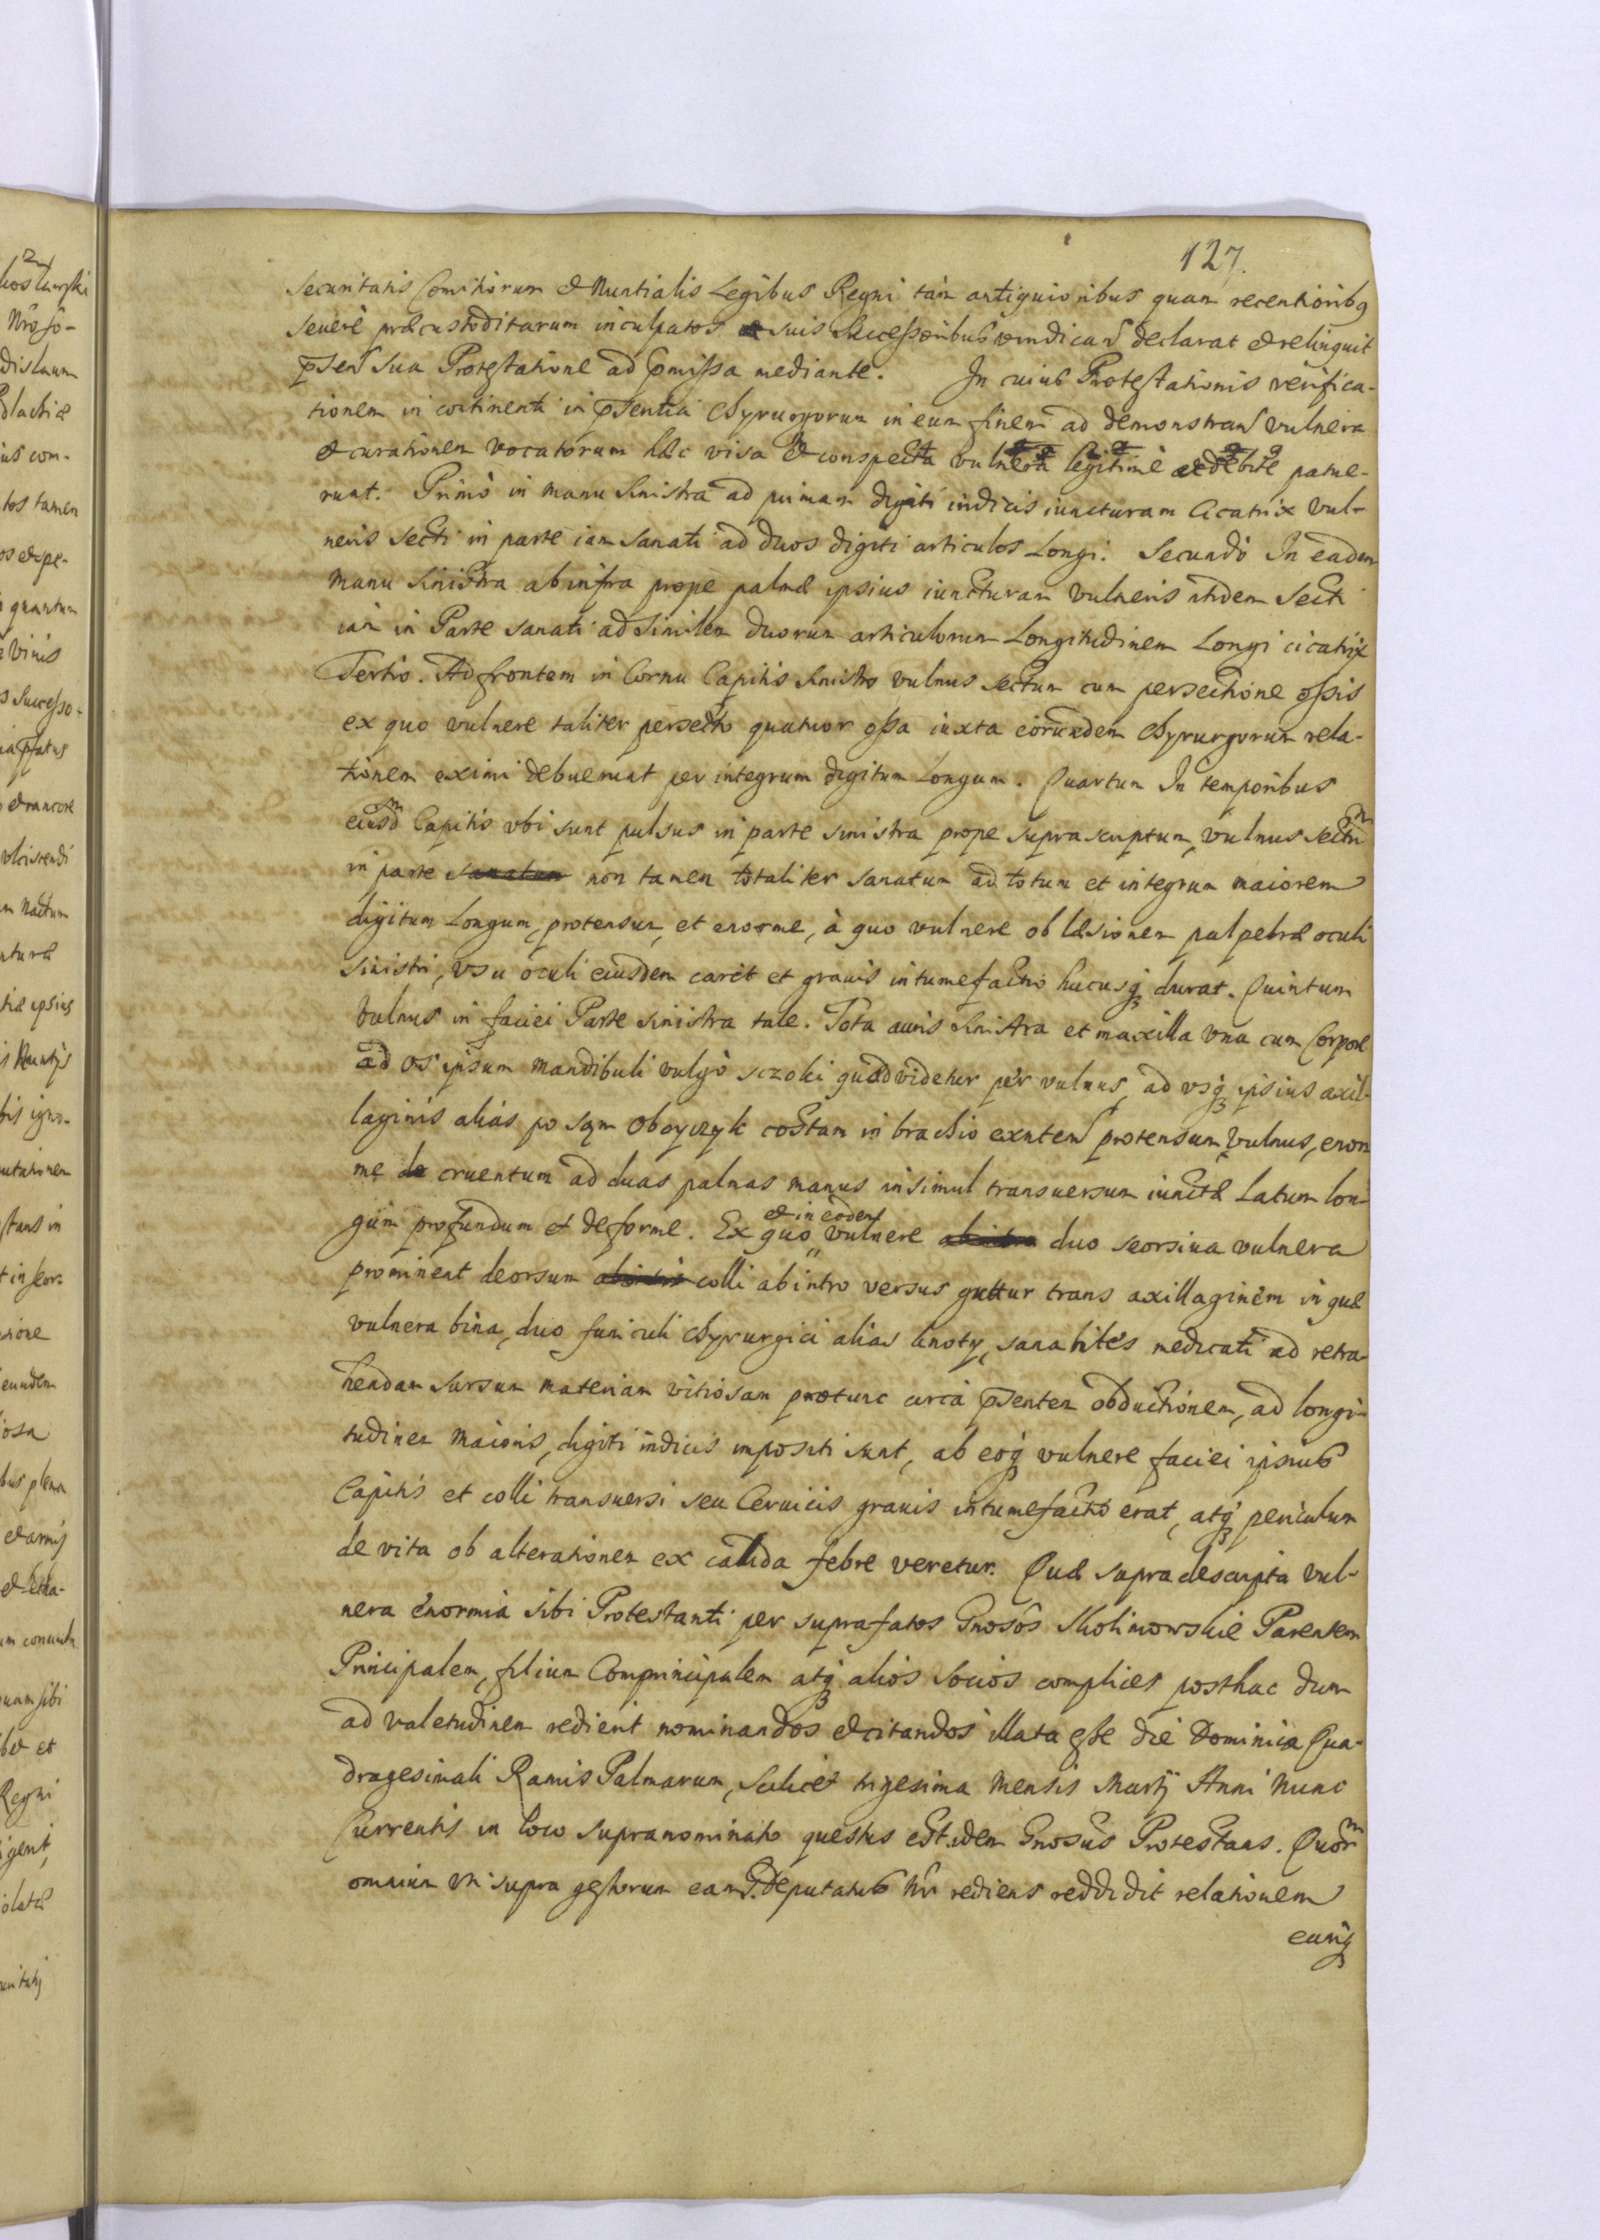 127.
securitatis Comitiorum et Nuntialis Legibus Regni tam antiquioribus quam recentiorib9
severè præcustoditarum inculpatos suis Successoribus vendican declarat et relinquit
pñsen sua Protestatione ad pmissa mediante. In cuius Protestationis verifica-
tionem in continenti in pñsentia Chyrurgorum in eum finem ad demonstran vulnera
et curationem vocatorum hæc visa et conspecta vulnera legitimè ac debitè patue-
runt. Primò in manu sinistra ad primam digiti indicis iuncturam Cicatrix vul-
neris secti in parte iam sanati ad duos digiti articulos Longi. Secundò In eadem
manu sinistra ab infra prope palmæ ipsius iuncturam vulneris itidem Secti
iam in Parte sanati ad similem duorum articulorum Longitudinem Longi cicatrix
Tertio. Ad frontem in Cornu Capitis sinistro vulnus sectum cum persectione ossis
ex quo vulnere taliter persecto quatuor ossa iuxta eorundem Chyrurgorum rela-
tionem eximi debuerunt per integrum digitum Longum. Quartum In temporibus
eiusd Capitis vbi sunt pulsus in parte sinistra prope suprascriptum, vulnus sectu
in parte sanatum non tamen totaliter sanatum ad totum et integrum maiorem
digitum Longum, protensum, et enorme, à quo vulnere ob læsionem palpebræ oculi
sinistri, vsu oculi eiusdem caret et gravis intumefactio hucusq durat. Quintum
vulnus in faciei Parte sinistra tale. Tota auris sinistra et maxilla vna cum Corpore
ad os ipsum mandibuli vulgò sczoki quod videtur per vulnus, ad vsq ipsius axil-
laginis alias po sąm oboyczyk costam in brachio exnten protensum, vulnus, enor
me cruentum ad duas palmas manus insimul transversum iunctæ Latum lon-
gum profundum et deforme. Ex quo et in eodem vulnere duo seorsiva vulnera
prominent deorsum colli abintro versus guttur trans axillaginem in quæ
vulnera bina, duo funiculi Chyrurgici alias knoty, sanabiles medicati ad retra-
hendam sursum materiam vitiosam protunc circa pñsentem obductionem, ad longi-
tudinem maioris, digiti indicis impositi sunt, ab eoq vulnere faciei ipsius
Capitis et colli transversi seu Cervicis gravis intumefactio erat, atq periculum
de vita ob alterationem ex calida febre veretur. Quæ supradescripta vul-
nera enormia sibi Protestanti per suprafatos Gnosos Skolimowskie Parentem
Principalem, filium Comprincipalem atq alios Socios complices posthac dum
ad valetudinem redierit nominandos et citandos illata esse die Dominica Qua-
dragesimali Ramis Palmarum, scilicet trigesima mensis Martÿ Anni nunc
Currentis in loco supranominato questus est idem Gnosus Protestans. Quor
omnium vti supra gestorum eam Deputatus nr rediens reddidit relationem
eanq